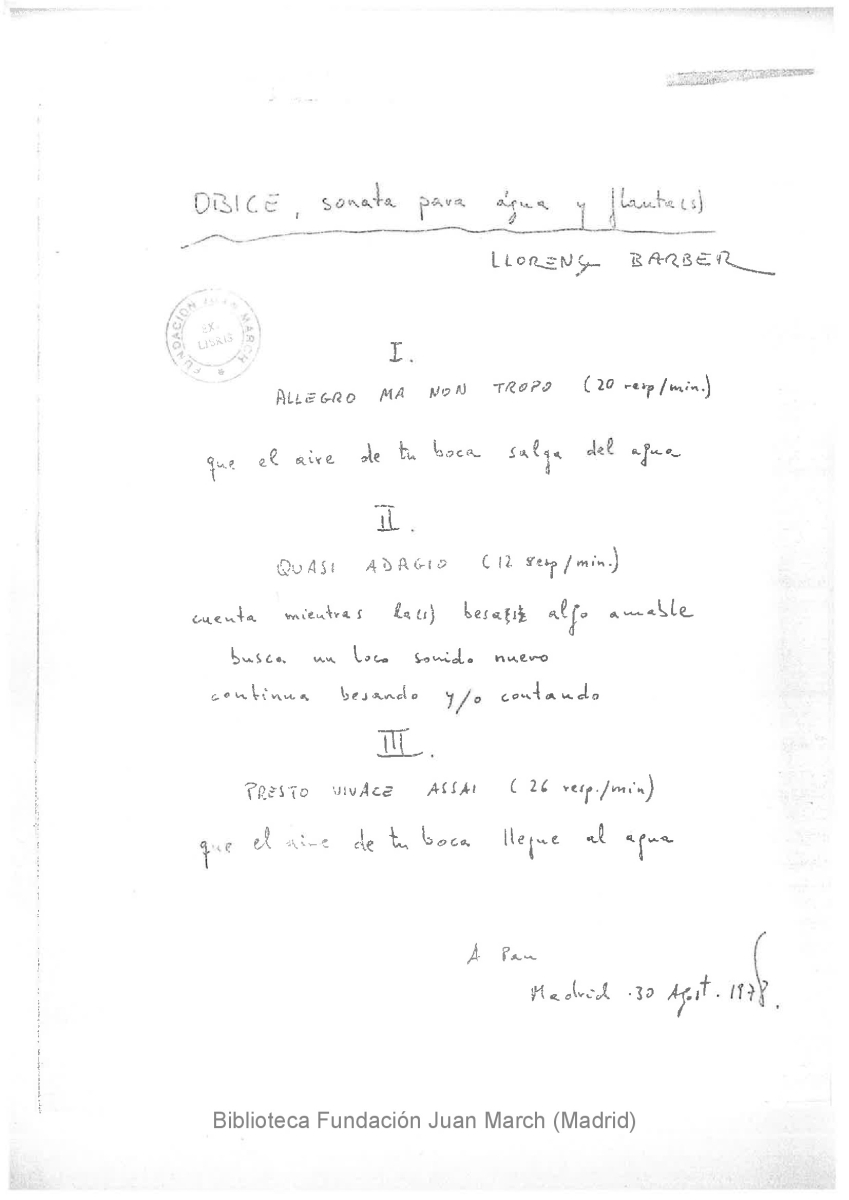 OBICE, sonata para água y flauta(s)
LLORENÇ BARBER
FUNDACIÓN JUAN MARCH
EX-
LIBRIS
I.
ALLEGRO MA NON TROPO (20 resp/min.)
que el aire de tu boca salga del agua
II.
QUASI ADAGIO (12 resp/min.)
cuenta mientras la(s) besa algo amable
busca un loco sonido nuevo
continua besando y/o contando
III.
PRESTO VIVACE ASSAI (26 resp./min)
que el aire de tu boca llegue al agua
A Pau
Madrid .30 Agost. 1978.
Biblioteca Fundación Juan March (Madrid)